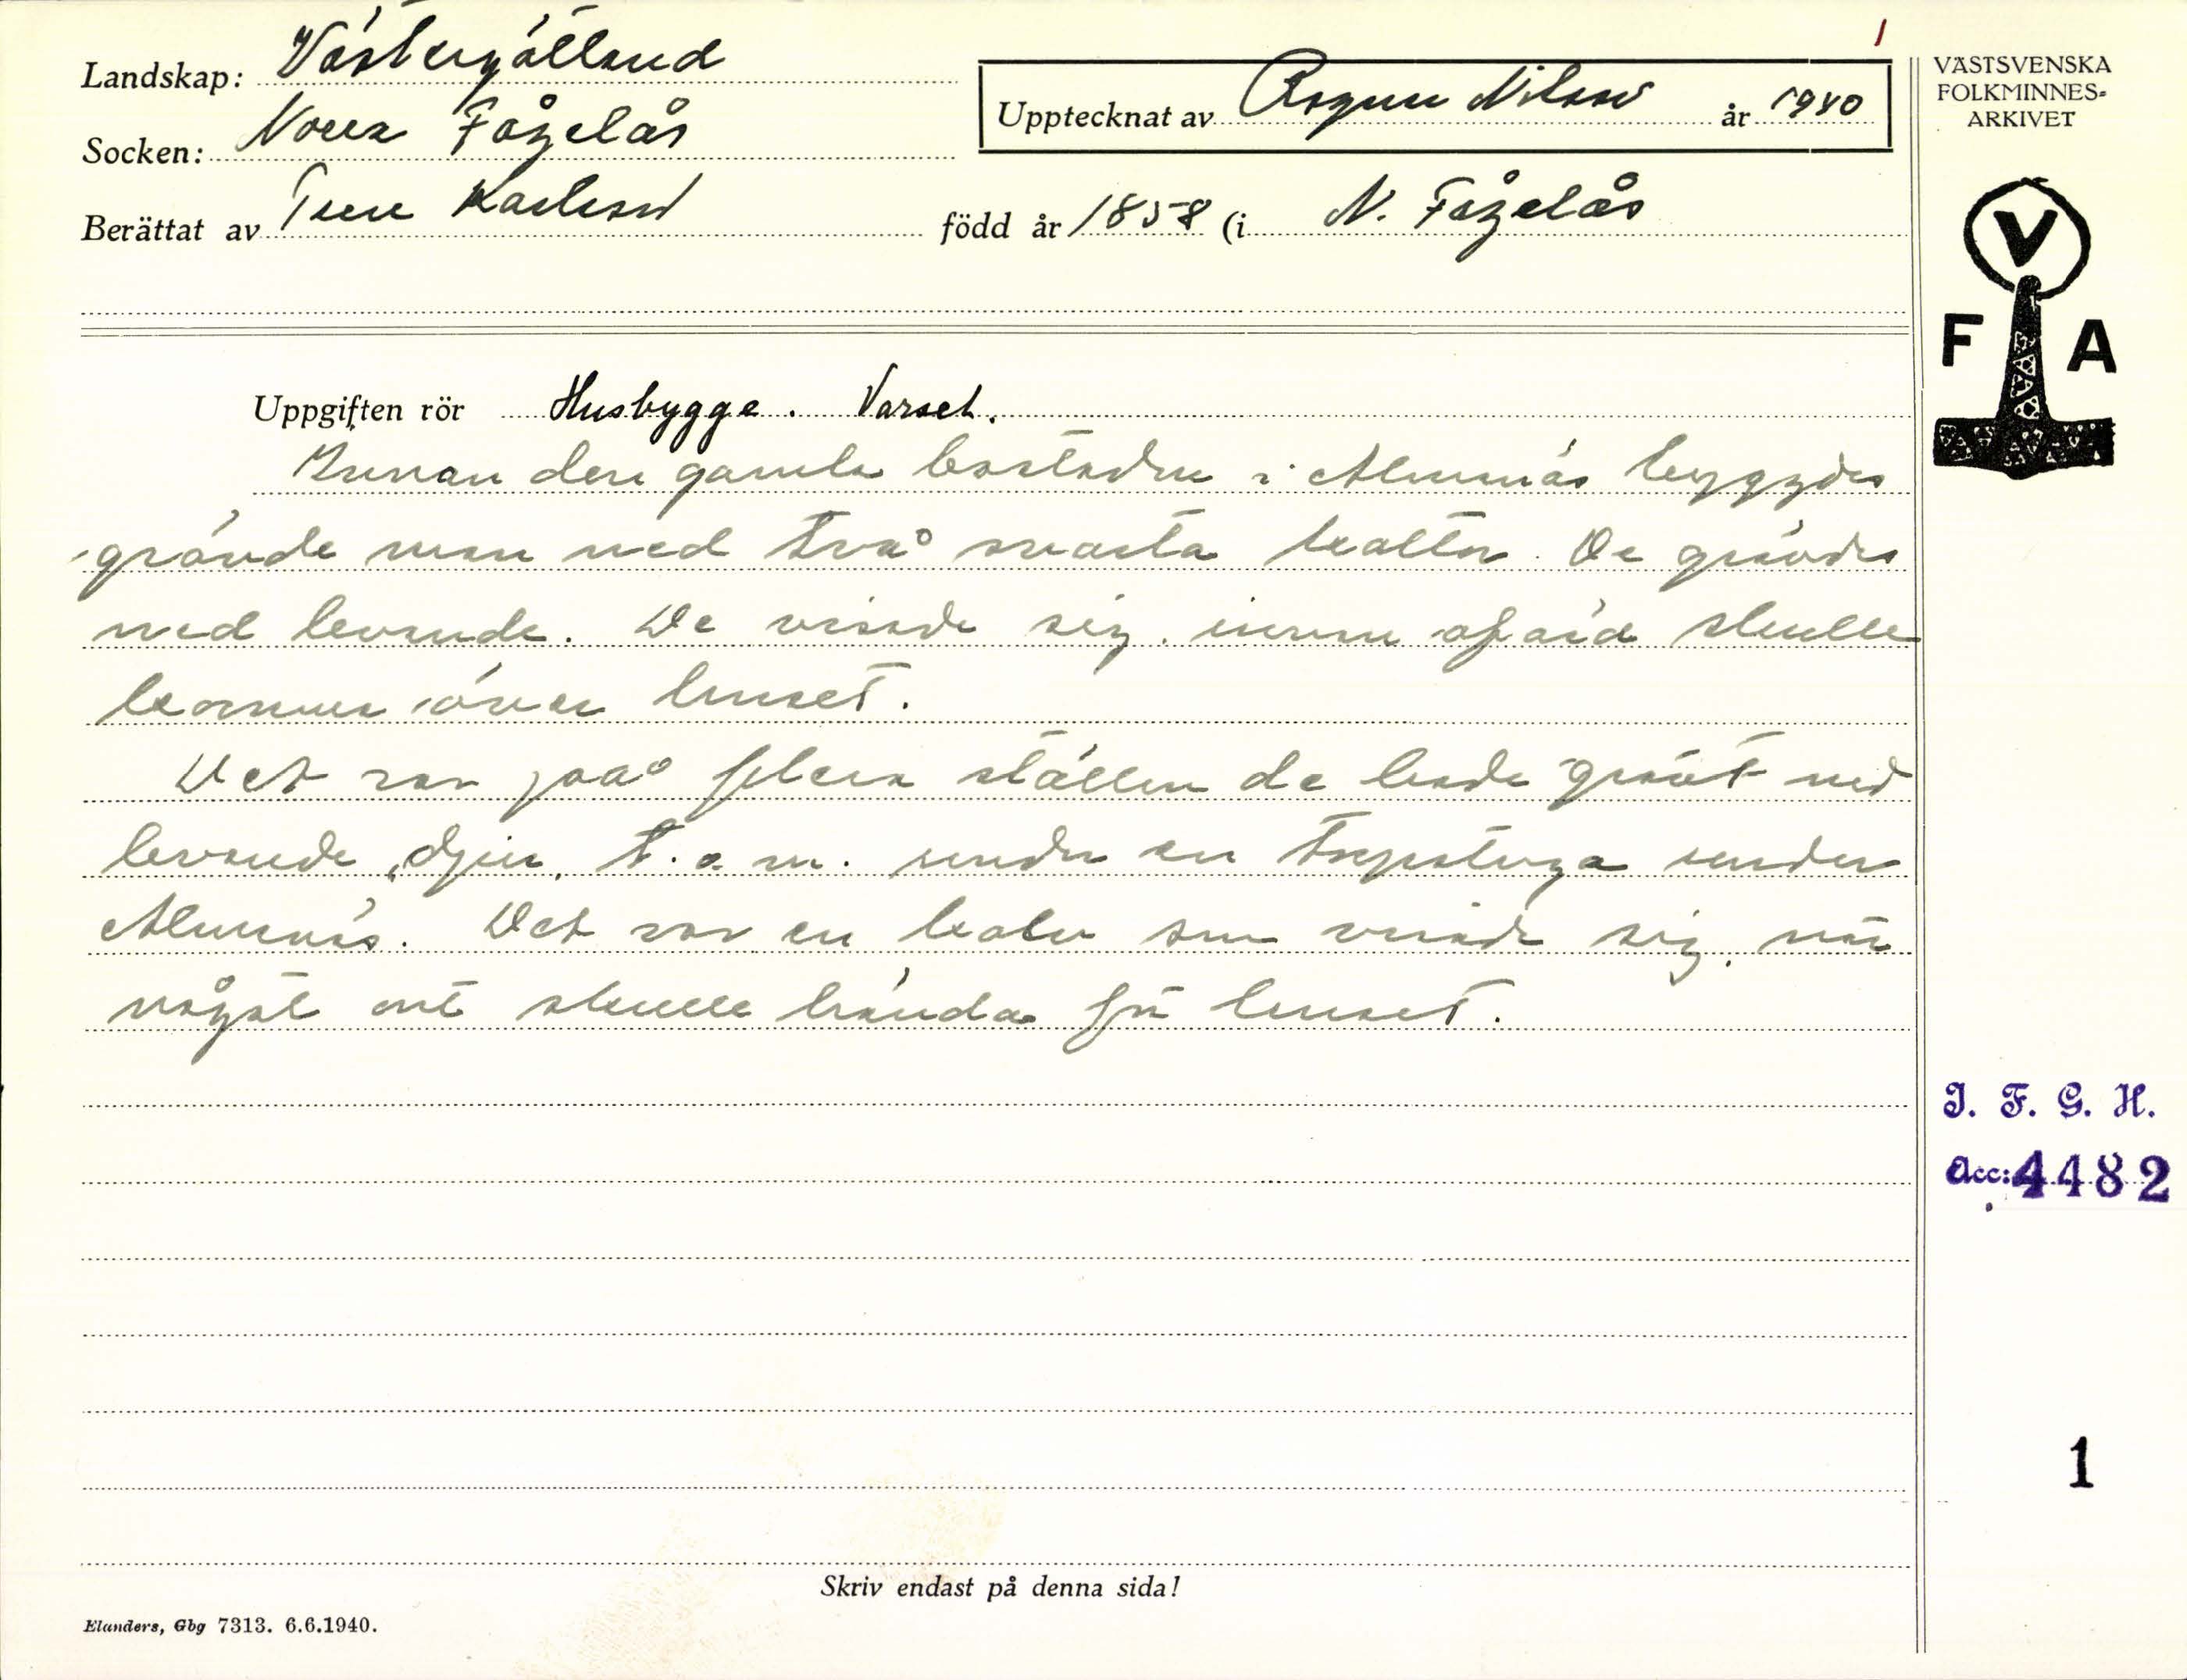 1
Landskap: Västergötland
Socken: Norra Fågelås
Upptecknat av Ragnar Nilsson år 1940
Berättat av Ture Karlsson född år 1858 (i N. Fågelås
VÄSTSVENSKA
FOLKMINNES-
ARKIVET
V
F A
Uppgiften rör Husbygge. Varsel.
Innan den gamla bostaden i Almnäs byggdes
grävde man ned två svarta kattor. De grävdes
ned levande. De visade sig innan ofärd skulle
komma över huset.
Det var på flera ställen de hade grävt ned
levande djur, t.o.m. under en torpstuga under
Almnäs. Det var en kalv som visade sig när
något ont skulle hända för huset.
I. F. G. H.
Acc: 4482
1
Skriv endast på denna sida!
Elanders, Gbg 7313. 6.6.1940.